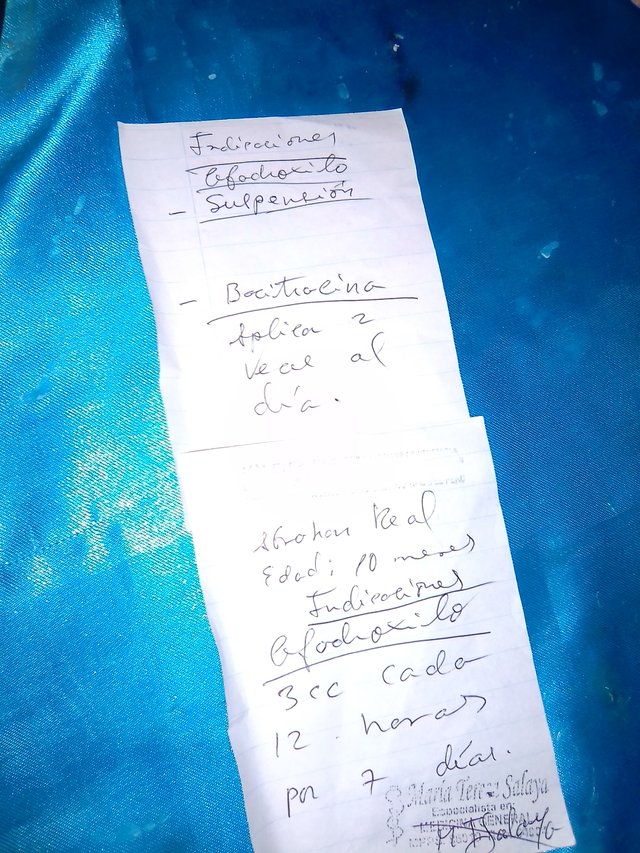 Indicaciones
Cefadroxilo
- Suspensión
- Bacitracina
Aplica 2
veces al
día.
Abrahan Real
Edad: 10 meses
Indicaciones
Cefadroxilo
3 cc cada
12 horas
por 7 días.
María Teresa Salaya
Especialista en:
MEDICINA GENERAL